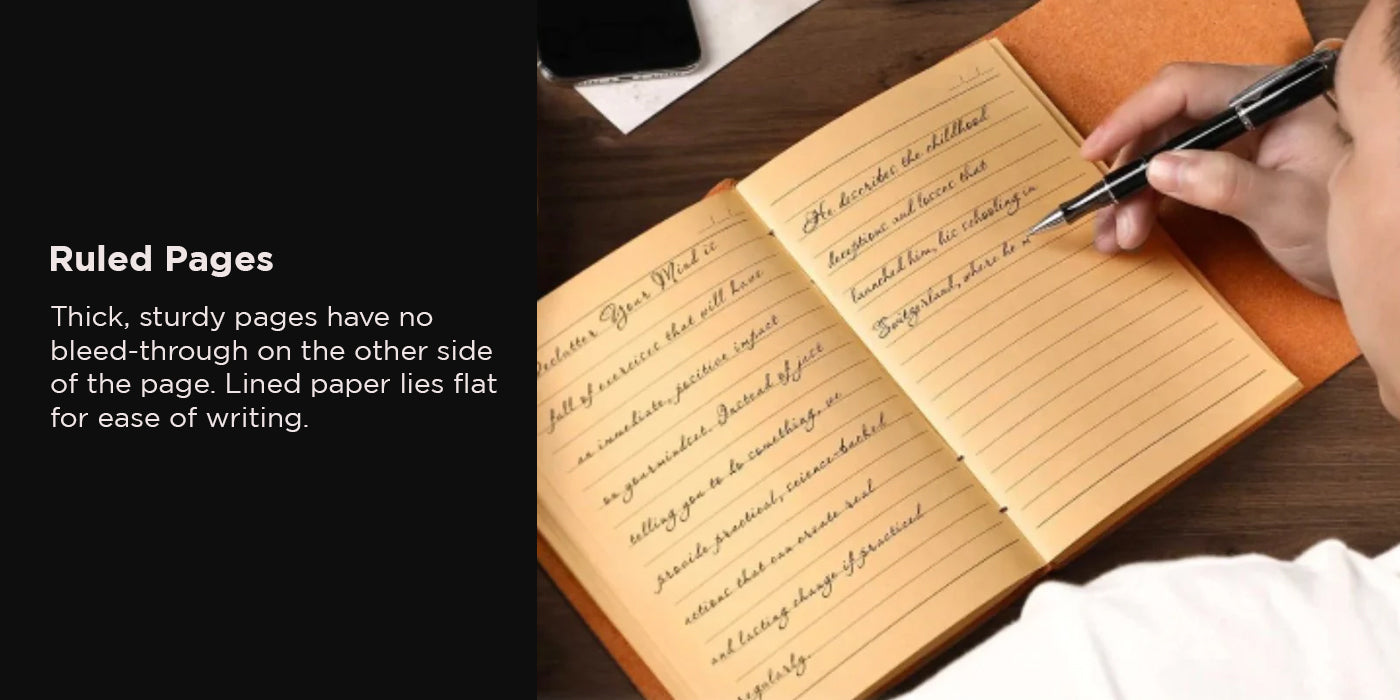 Ruled Pages
Thick, sturdy pages have no
bleed-through on the other side
of the page. Lined paper lies flat
for ease of writing.
Declutter Your Mind is
full of exercises that will have
an immediate, positive impact
on yourmindset. Instead of just
telling you to do something, we
provide practical, science-backed
actions that can create real
and lasting change if practiced
regularly.
He describes the childhood
deceptions and losses that
launched him, his schooling in
Switzerland, where he